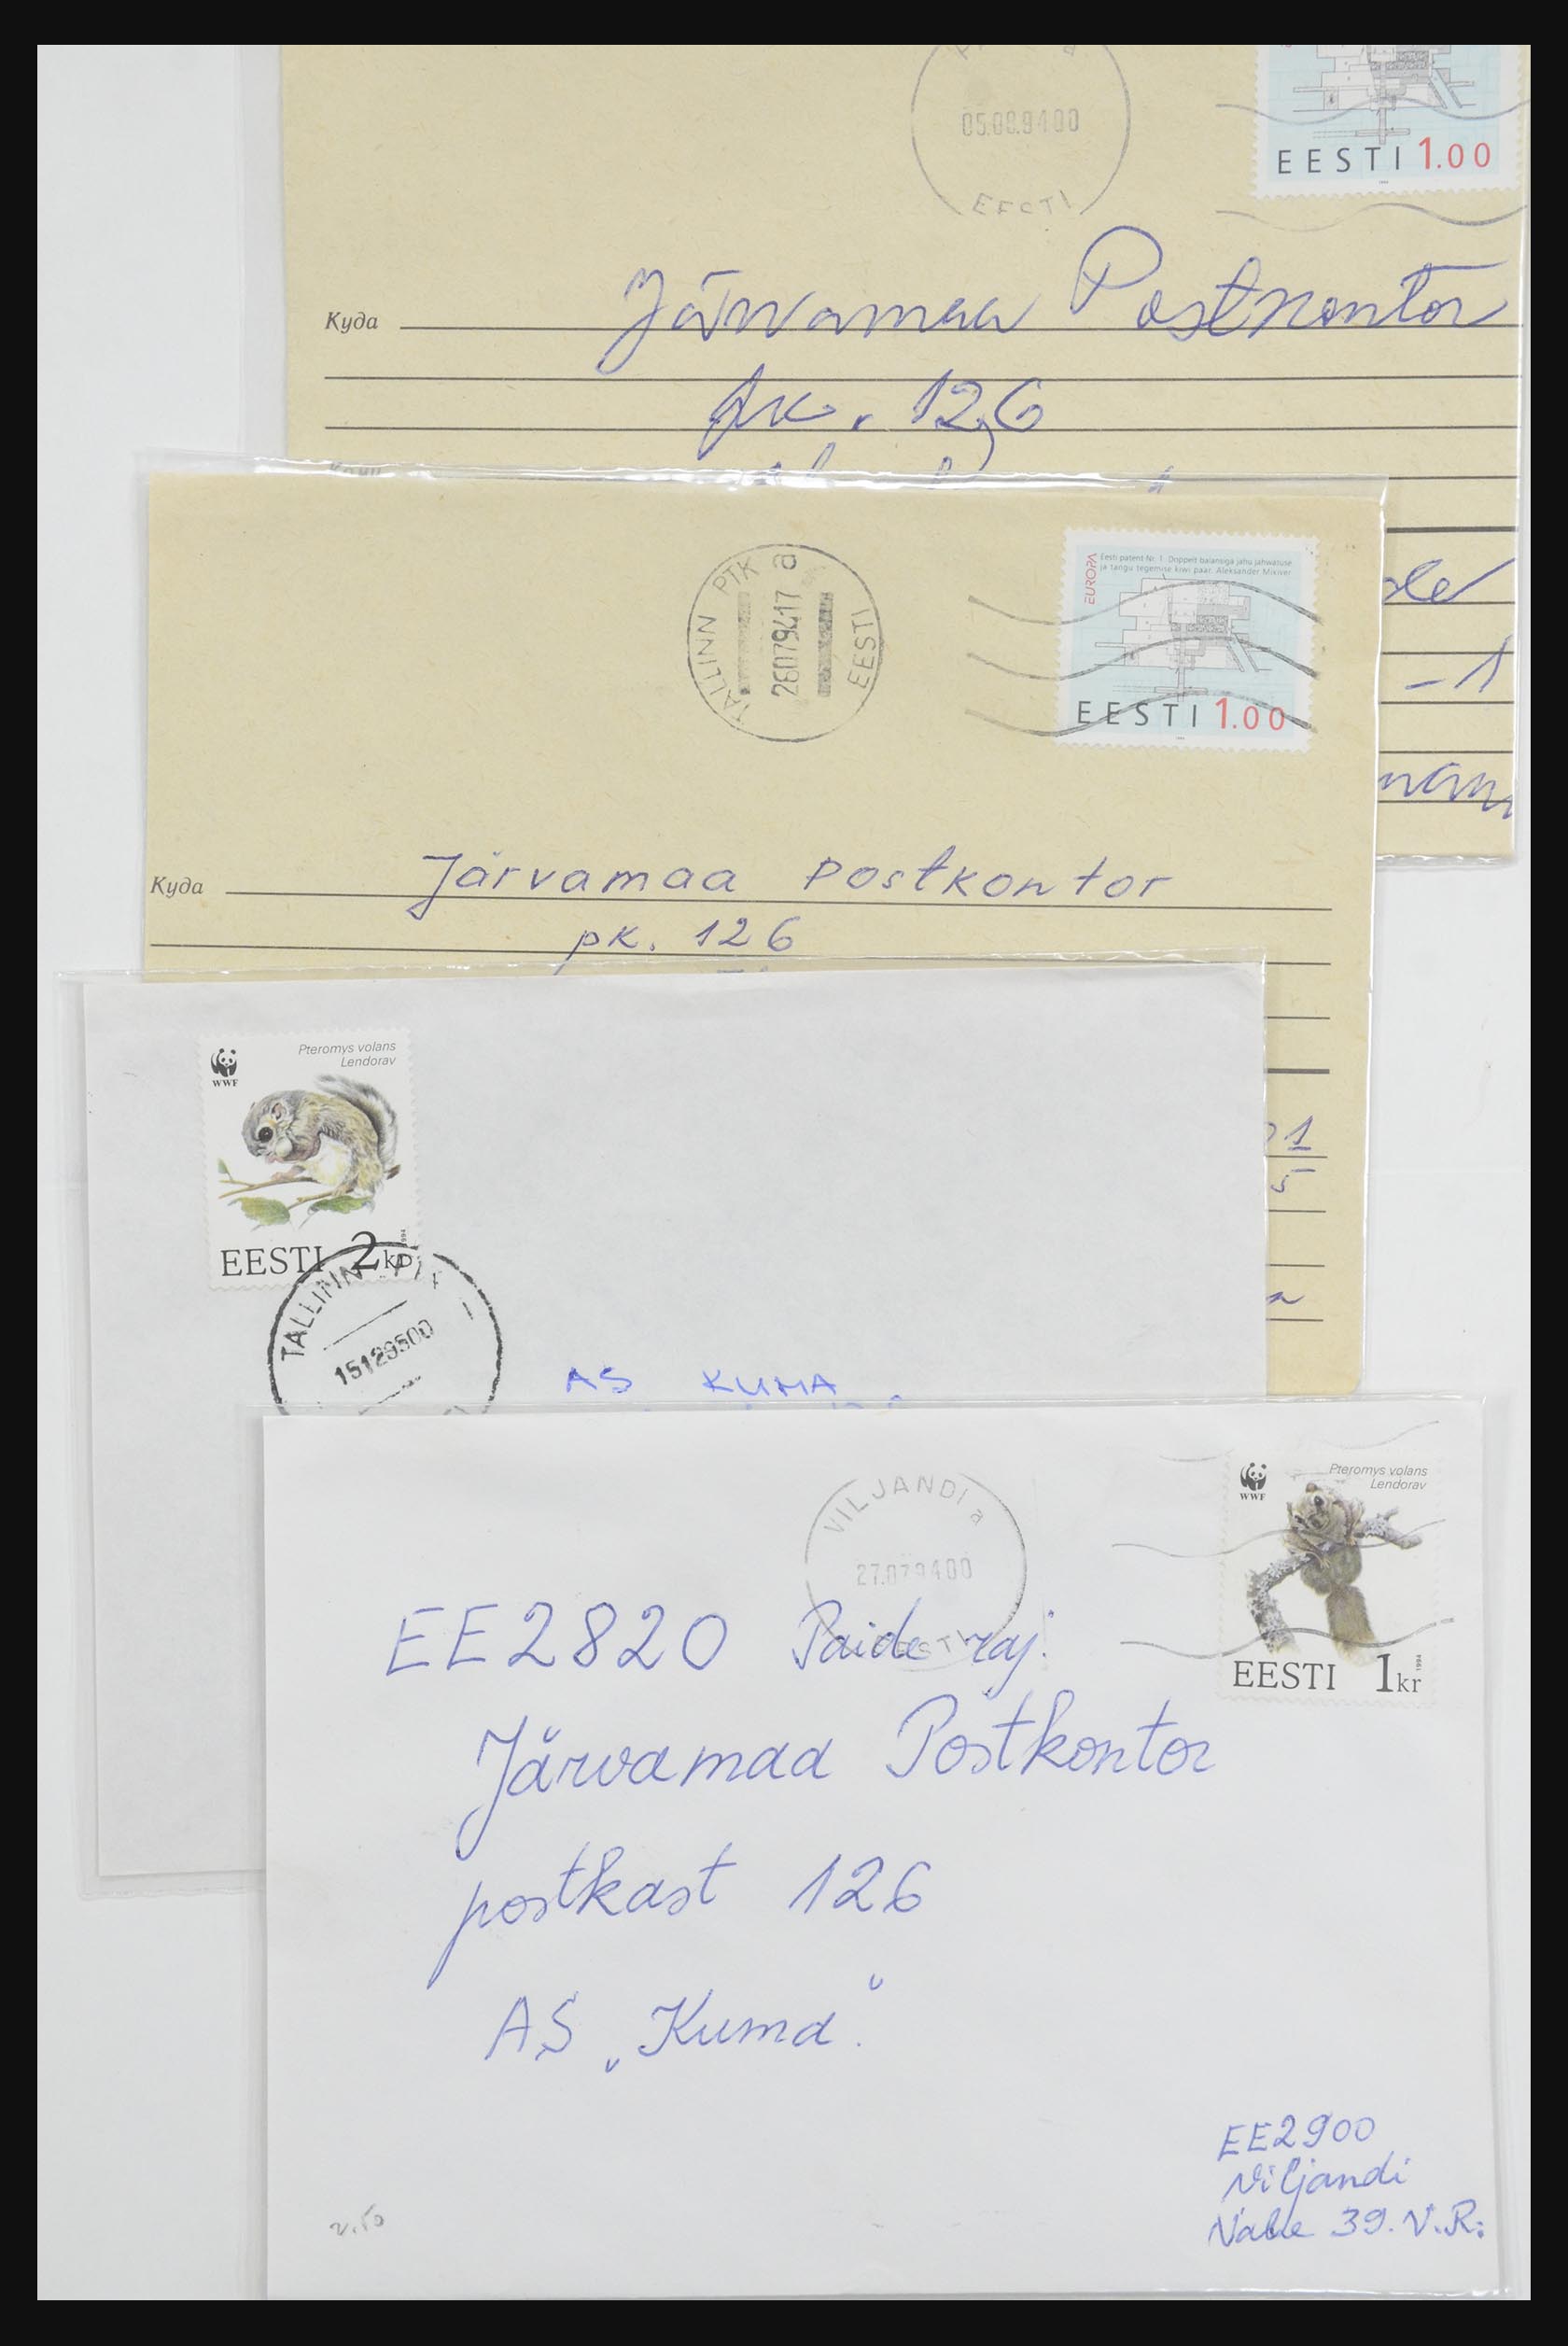 05.08.94 00
EESTI
EESTI 1.00
Järvamaa Postkontor
Куда
pk. 126
TALLINN PTK a
260794 17
EESTI
EUROPA
Eesti patent Nr. 1. Doppelt balansiga jahu jahwatuse
ja tangu tegemise kiwi paar. Aleksander Mikiver
EESTI 1.00
- 1
Järvamaa Postkontor
Куда
pk. 126
WWF
Pteromys volans
Lendorav
1994
EESTI 2 kr
TALLINN PTK
151295 00
1
5
AS KUMA
WWF
Pteromys volans
Lendorav
1994
EESTI 1 kr
VILJANDI a
27.07.94 00
EESTI
EE2820 Paide raj.
Järvamaa Postkontor
postkast 126
AS „Kuma".
EE2900
Viljandi
39. V.R.